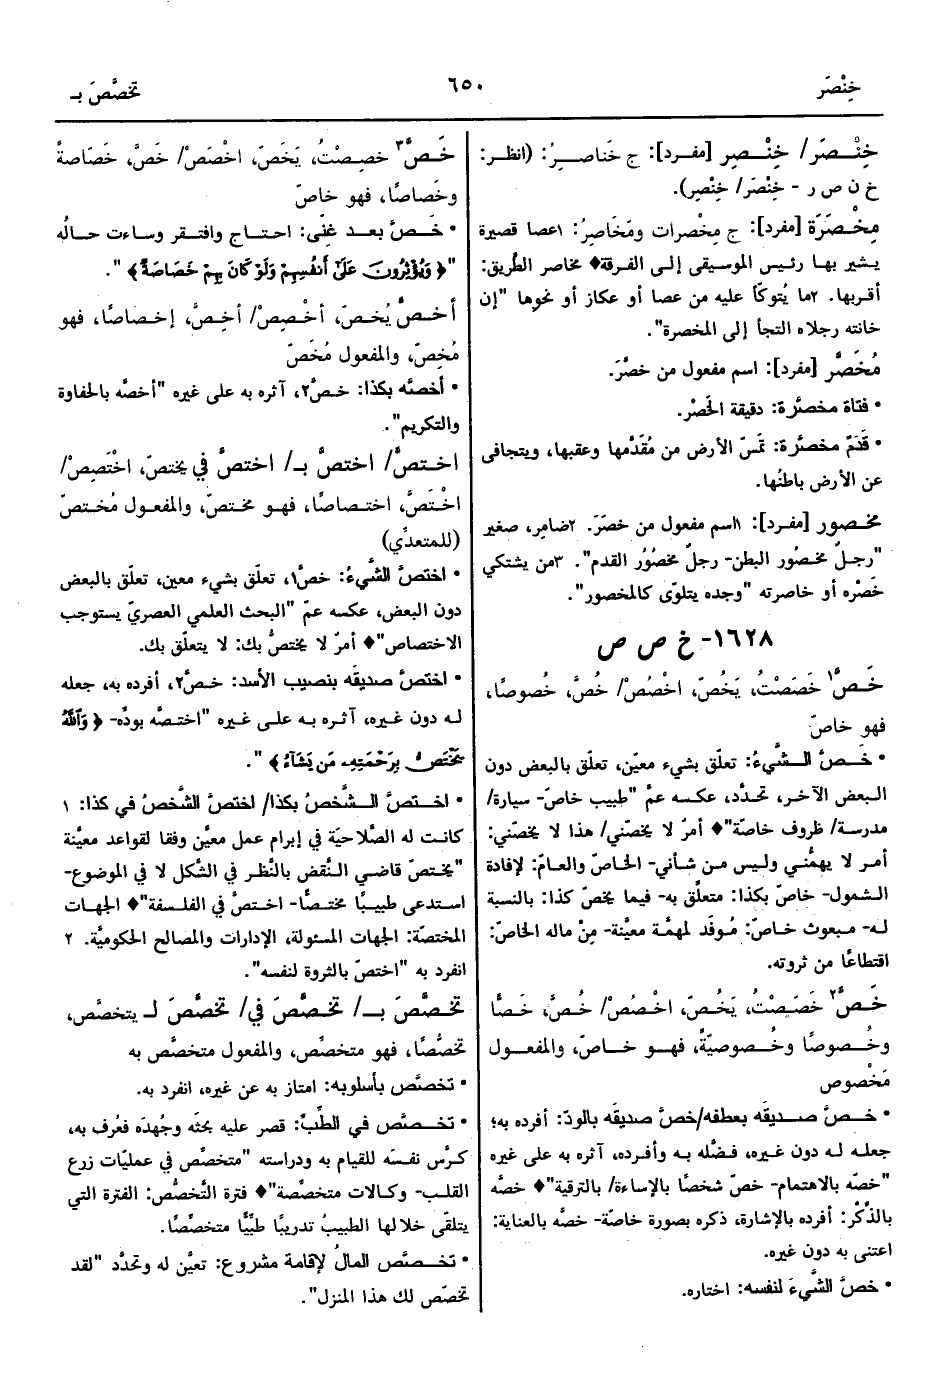 خِنْصَر
٦٥٠
تخصَّصَ بـ
خِنْـصَر/ خِنْـصِر [مفـرد]: ج خَناصِـرُ: (انظر:
خ ن ص ر - خِنْصَر/ خِنْصِر).
مِخْصَرَة [مفرد]: ج مِخْصرات ومَخَاصِرُ: ١عصا قصيرة
يشير بها رئيس الموسيقى إلى الفرقة♦ مخاصر الطَّريق:
أقربها. ٢ما يُتوكّأ عليه من عصا أو عكاز أو نحوها "إن
خانته رجلاه التجأ إلى المخصرة".
مُخَصَّر [مفرد]: اسم مفعول من خصَّرَ.
• فتاة مخصَّرة: دقيقة الخَصْر.
• قَدَمٌ مخصَّرة: تمسّ الأرض من مُقَدَّمها وعقبها، ويتجافى
عن الأرض باطنُها.
مخصور [مفرد]: ١اسم مفعول من خصَرَ. ٢ضامِر، صغير
"رجلٌ مخصُور البطن- رجلٌ مخصُوُر القدم". ٣من يشتكي
خَصْره أو خاصرته "وجده يتلوّى كالمخصور".
١٦٢٨- خ ص ص
خَـصَّ١ خَصَصْتُ، يَخُصّ، اخْصُصْ/ خُصَّ، خُصوصًا،
فهو خاصّ
• خَـصَّ الـشَّيءُ: تعلّق بشيء معيّن، تعلّق بالبعض دون
البعض الآخـر، تحدَّد، عكسه عمَّ "طبيب خاصّ- سيارة/
مدرسة/ ظروف خاصّة"♦ أمرٌ لا يخصّني/ هذا لا يخصّني:
أمـر لا يهمُّني وليس مـن شأني- الخاصّ والعامّ: لإفادة
الـشمول- خاصّ بكذا: متعلِّق به- فيما يخصّ كذا: بالنسبة
لـه- مـبعوث خـاصّ: مُوفَد لمهمَّة معيَّنة- مِنْ ماله الخاصّ:
اقتطاعًا من ثروته.
خَـصَّ٢ خَصَـصْتُ، يَخُـصّ، اخْـصُصْ/ خُـصَّ، خَـصًّا
وخُـصوصًا وخُـصوصيّةً، فهـو خـاصّ، والمفعـول
مَخْصوص
• خَـصَّ صـديقَه بعطفه/خصَّ صديقَه بالودّ: أفرده به؛
جعلـه لـه دون غيره، فـضَّله بـه وأفـرده، آثره به على غيره
"خصّه بالاهتمام- خصّ شخصًا بالإساءة/ بالترقية"♦ خصَّه
بالذِّكْر: أفرده بالإشارة، ذكره بصورة خاصّة- خصَّه بالعناية:
اعتنى به دون غيره.
• خصَّ الشَّيءَ لنفسه: اختاره.
خَـصَّ٣ خصِصْتُ، يَخَصّ، اخْصَصْ/ خَصَّ، خَصَاصةً
وخَصاصًا، فهو خاصّ
• خَـصَّ بعـد غِنًى: احتـاج وافتـقر وسـاءت حـالُه
"﴿ وَيُؤْثِرُونَ عَلَىٰٓ أَنفُسِهِمْ وَلَوْ كَانَ بِهِمْ خَصَاصَةٌ ﴾ ".
أخـصَّ يُخـصّ، أَخْـصِصْ/ أخِـصَّ، إخـصاصًا، فهو
مُخِصّ، والمفعول مُخَصّ
• أخصَّه بكذا: خـصَّ٢، آثره به على غيره "أخصَّه بالحفاوة
والتكريم".
اخـتصَّ/ اختصَّ بـ/ اختصَّ في يختصّ، اخْتَصِصْ/
اخْـتَصَّ، اختـصاصًا، فهـو مختـصّ، والمفعول مُختـصّ
(للمتعدِّي)
• اختصَّ الشَّيءُ: خصَّ١، تعلّق بشيء معين، تعلّق بالبعض
دون البعض، عكسه عمّ "البحث العلمي العصريّ يستوجب
الاختصاص"♦ أمرٌ لا يختصُّ بك: لا يتعلّق بك.
• اختصَّ صديقَه بنصيب الأسد: خـصَّ٢، أفرده به، جعله
لـه دون غيره، آثـره بـه علـى غيـره "اختـصَّه بودِّه- ﴿ وَٱللَّهُ
يَخْتَصُّ بِرَحْمَتِهِۦ مَن يَشَآءُ ﴾ ".
• اخـتصَّ الـشَّخصُ بكذا/ اختصَّ الشَّخصُ في كذا: ١
كانت له الصَّلاحيّة في إبرام عمل معيَّن وفقا لقواعد معيَّنة
"يختصّ قاضي النَّقض بالنَّظر في الشَّكل لا في الموضوع-
استدعى طبيـبًا مختـصًّا- اختـصّ في الفلسفة"♦ الجهات
المختصّة: الجهات المسئولة، الإدارات والمصالح الحكوميَّة. ٢
انفرد به "اختصّ بالثروة لنفسه".
تخـصَّصَ بـ/ تخـصَّصَ في/ تخصَّصَ لـ يتخصَّص،
تخصُّصًا، فهو متخصِّص، والمفعول متخصَّص به
• تخصَّص بأسلوبه: امتاز به عن غيره، انفرد به.
• تخـصَّص في الطِّبّ: قصر عليه بحثَه وجُهدَه فعُرف به،
كـرَّس نفـسَه للقيام به ودراسته "متخصِّص في عمليّات زرع
القلب- وكالات متخصِّصة"♦ فترة التَّخصُّص: الفترة التي
يتلقّى خلالها الطبيبُ تدريبًا طبِّيًّا متخصِّصًا.
• تخـصَّص المالُ لإقامة مشروع: تعيَّن له وتحدَّد "لقد
تخصّص لك هذا المنزل".